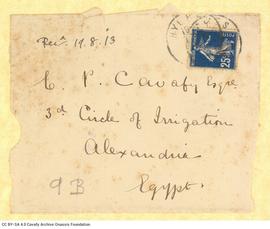 Rec. 19.8.13
C. P. Cavafy Esqre
3d Circle of Irrigation
Alexandria
Egypt.
9B
25
CC BY-SA 4.0 Cavafy Archive Onassis Foundation